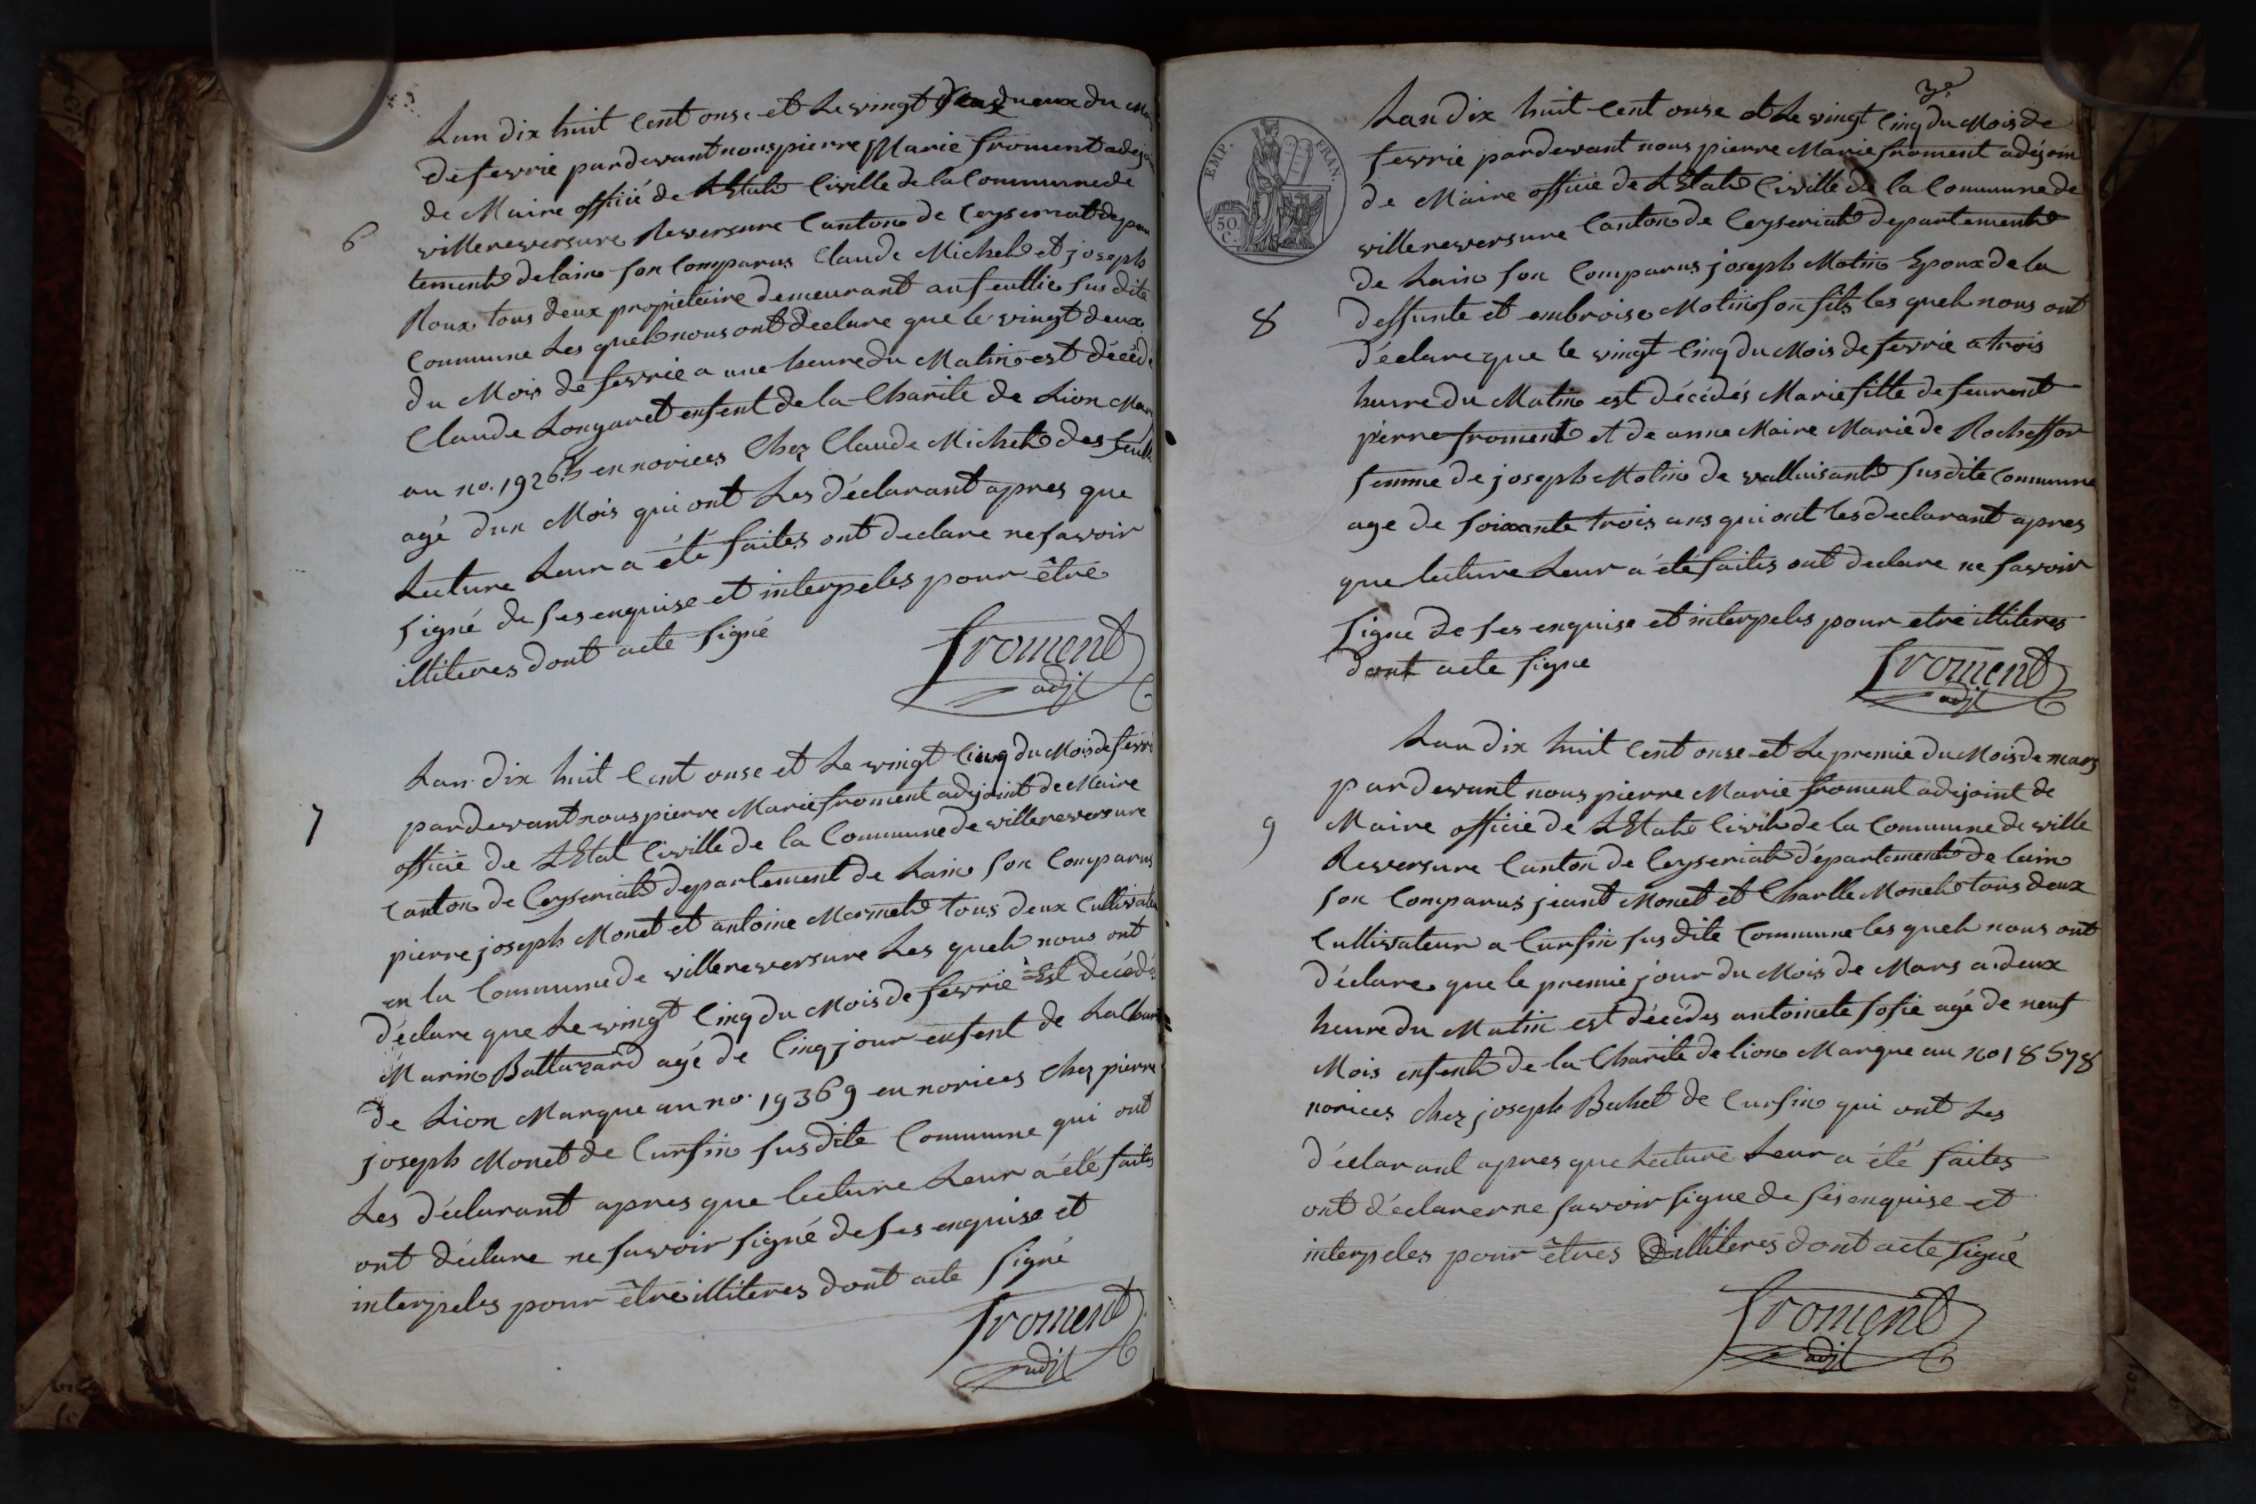 Lan dix huit Cent onse et Le vingt deux du mois
de fevrie pardevant nous pierre Marie froment adejoin
de Maire officié de LEtat Civille de la Commune de
6
villereversure Reversure Canton de Ceyseriat depar
tement de lain son Comparus Claude Michel et joseph
Roux tous deux propietaire demeurant au feullie susdite
Commune Les quel nous ont declare que le vingt deux
du Mois de fevrie a une heure du Matin est décédé
Claude Longaret enfent de la Charite de Lion Mar
au no. 1926 en norices Chez Claude Michel des feull
agé dun Mois qui ont Les déclarant apres que
Lecture Leur a été faites ont declare ne savoir
signé de ses enquise et interpeles pour être
illiteres dont acte signé
froment
adjt
Lan dix huit Cent onse et Le vingt Cinq du Mois de fevri
7
pardevant nous pierre Marie froment adejoint de Maire
officié de LEtat Civille de la Commune de villereversure
Canton de Ceyseriat departement de Lain son Comparus
pierre joseph Monet et antoine Mormet tous deux Cultivateu
en la Commune de villereversure Les quel nous ont
déclare que Le vingt Cinq du Mois de fevrie Est décédé
Marin Baltazard agé de Cinq jour enfent de La Chari
de Lion Marque au no. 19369 en norices Chez pierre
joseph Monet de Cursin susdite Commune qui ont
Les déclarant apres que lecture Leur a été faites
ont déclare ne savoir signé de ses enquise et
interpeles pour être illiteres dont acte signé
froment
adjt
3e
Lan dix huit Cent onse et Le vingt Cinq du Mois de
EMP. FRAN.
50 C.
fevrie pardevant nous pierre Marie froment adejoin
de Maire officie de LEtat Civille de la Commune de
villereversure Canton de Ceyseriat departement
de Lain son Comparus joseph Molin Epoux de la
8
deffunte et embroise Molin son fils les quel nous ont
déclare que le vingt Cinq du Mois de fevrie a trois
heure du Matin est décédés Marie fille de feu
pierre froment et de anne Maire Marie de Rocheffor
femme de joseph Molin de valluisant susdite Commune
age de soixante trois ans qui ont les declarant apres
que lecture Leur a été faites ont declare ne savoir
signe de ses enquise et interpeles pour etre illiteres
dont acte signe
froment
adjt
Lan dix huit Cent onse et Le premie du Mois de mars
pardevant nous pierre Marie froment adejoint de
9
Maire officie de LEtat Civil de la Commune de ville
Reversure Canton de Ceyseriat département de lain
son Comparus jeant Monet et Charlle Monet tous deux
Cultivateur a Cursin susdite Commune les quel nous ont
déclare que le premie jour du Mois de Mars a deux
heure du Matin est décédes antoinete sofie agé de neuf
Mois enfent de la Charite de lion Marque au no 18578
norices chez joseph Buhet de Cursin qui ont Les
déclarant apres que Lecture Leur a été faites
ont déclarer ne savoir signe de ses enquise et
interpeles pour êtres illiteres dont acte signé
froment
adjt